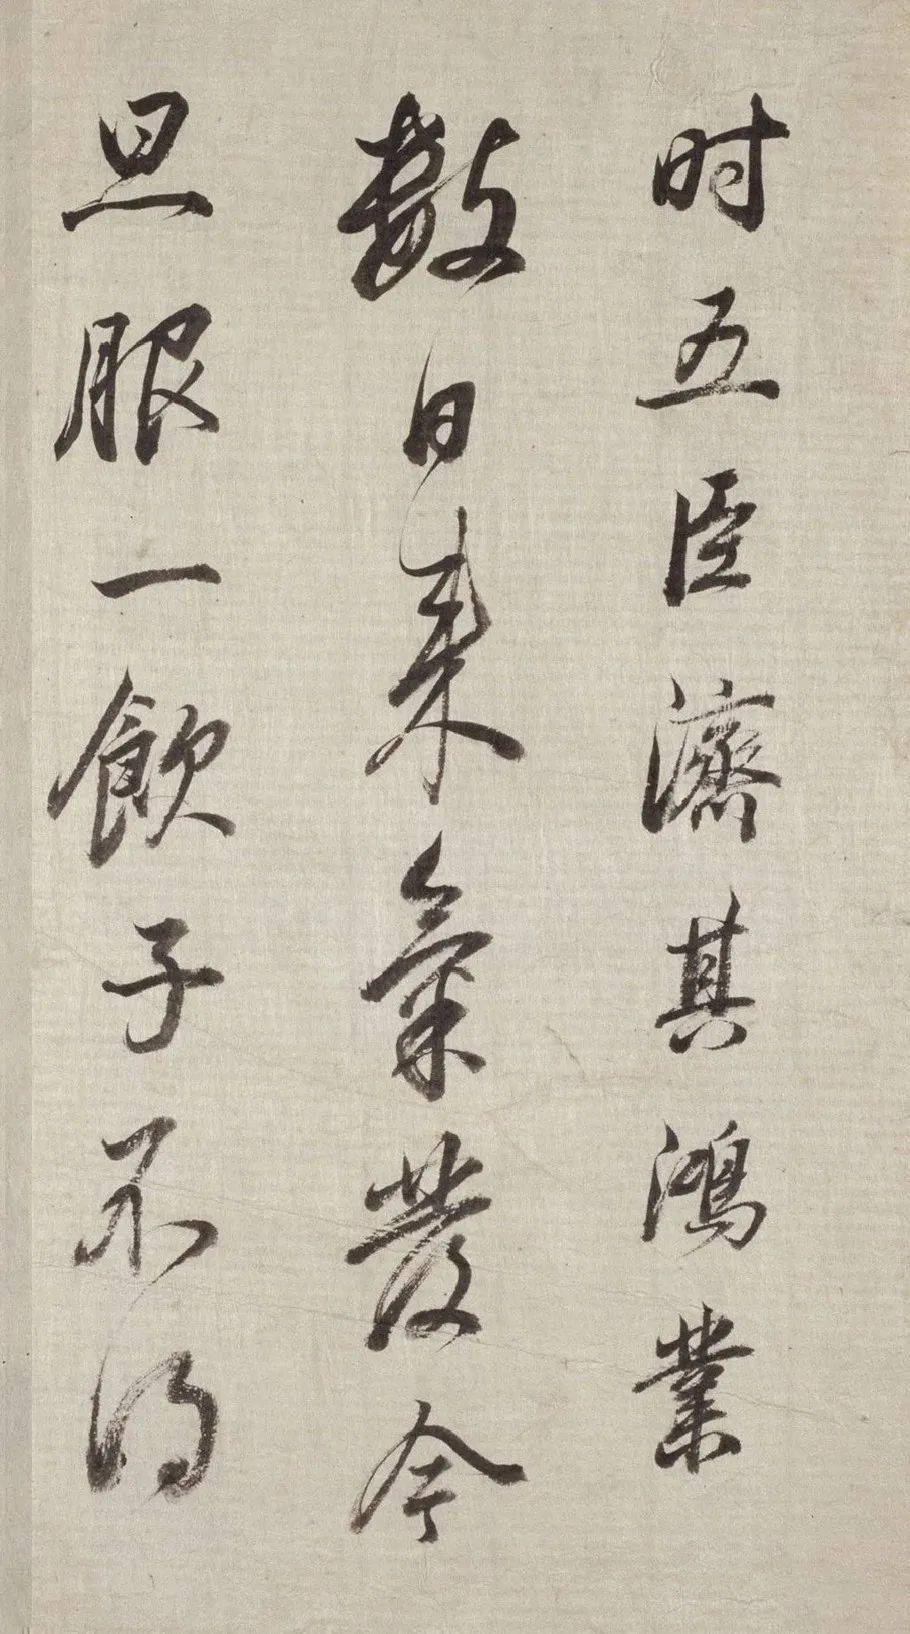 时五臣濟其鴻業
數日来氣發今
旦服一飲子不得